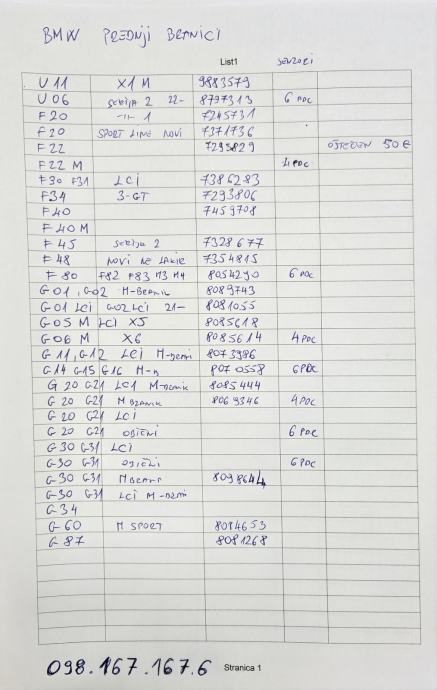 BMW PREDNJI BRANICI
List1 SENZORI
U 11 X1 M 9883579
U 06 SERIJA 2 22- 8797313 6 PDC
F 20 -11- 1 7245731
F 20 SPORT LINE NOVI 7371736
F 22 7295829 OŠTEĆEN 50 €
F 22 M 4 PDC
F 30 F31 LCI 7386283
F34 3-GT 7293806
F40 7459708
F 40 M
F 45 SERIJA 2 7328677
F 48 NOVI NE LAKIR 7354815
F 80 F82 F83 M3 M4 8054290 6 PDC
G01, G02 M-BRANIK 8089743
G01 LCI G02 LCI 21- 8081055
G05 M LCI X5 8085618
G06 M X6 8085614 4 PDC
G 11, G12 LCI M- 8073986
G14 G15 G16 M-B 8070558 6PDC
G 20 G21 LCI M-BRANIK 8085444
G 20 G21 M BRANIK 8069346 4 PDC
G 20 G21 LCI
G 20 G21 OBIČNI 6 PDC
G30 G31 LCI
G30 G31 OBIČNI 6PDC
G30 G31 M BRANIK 8098644
G-30 G31 LCI M-
G34
G-60 M SPORT 8084653
G 87 8081268
098.167.167.6 Stranica 1